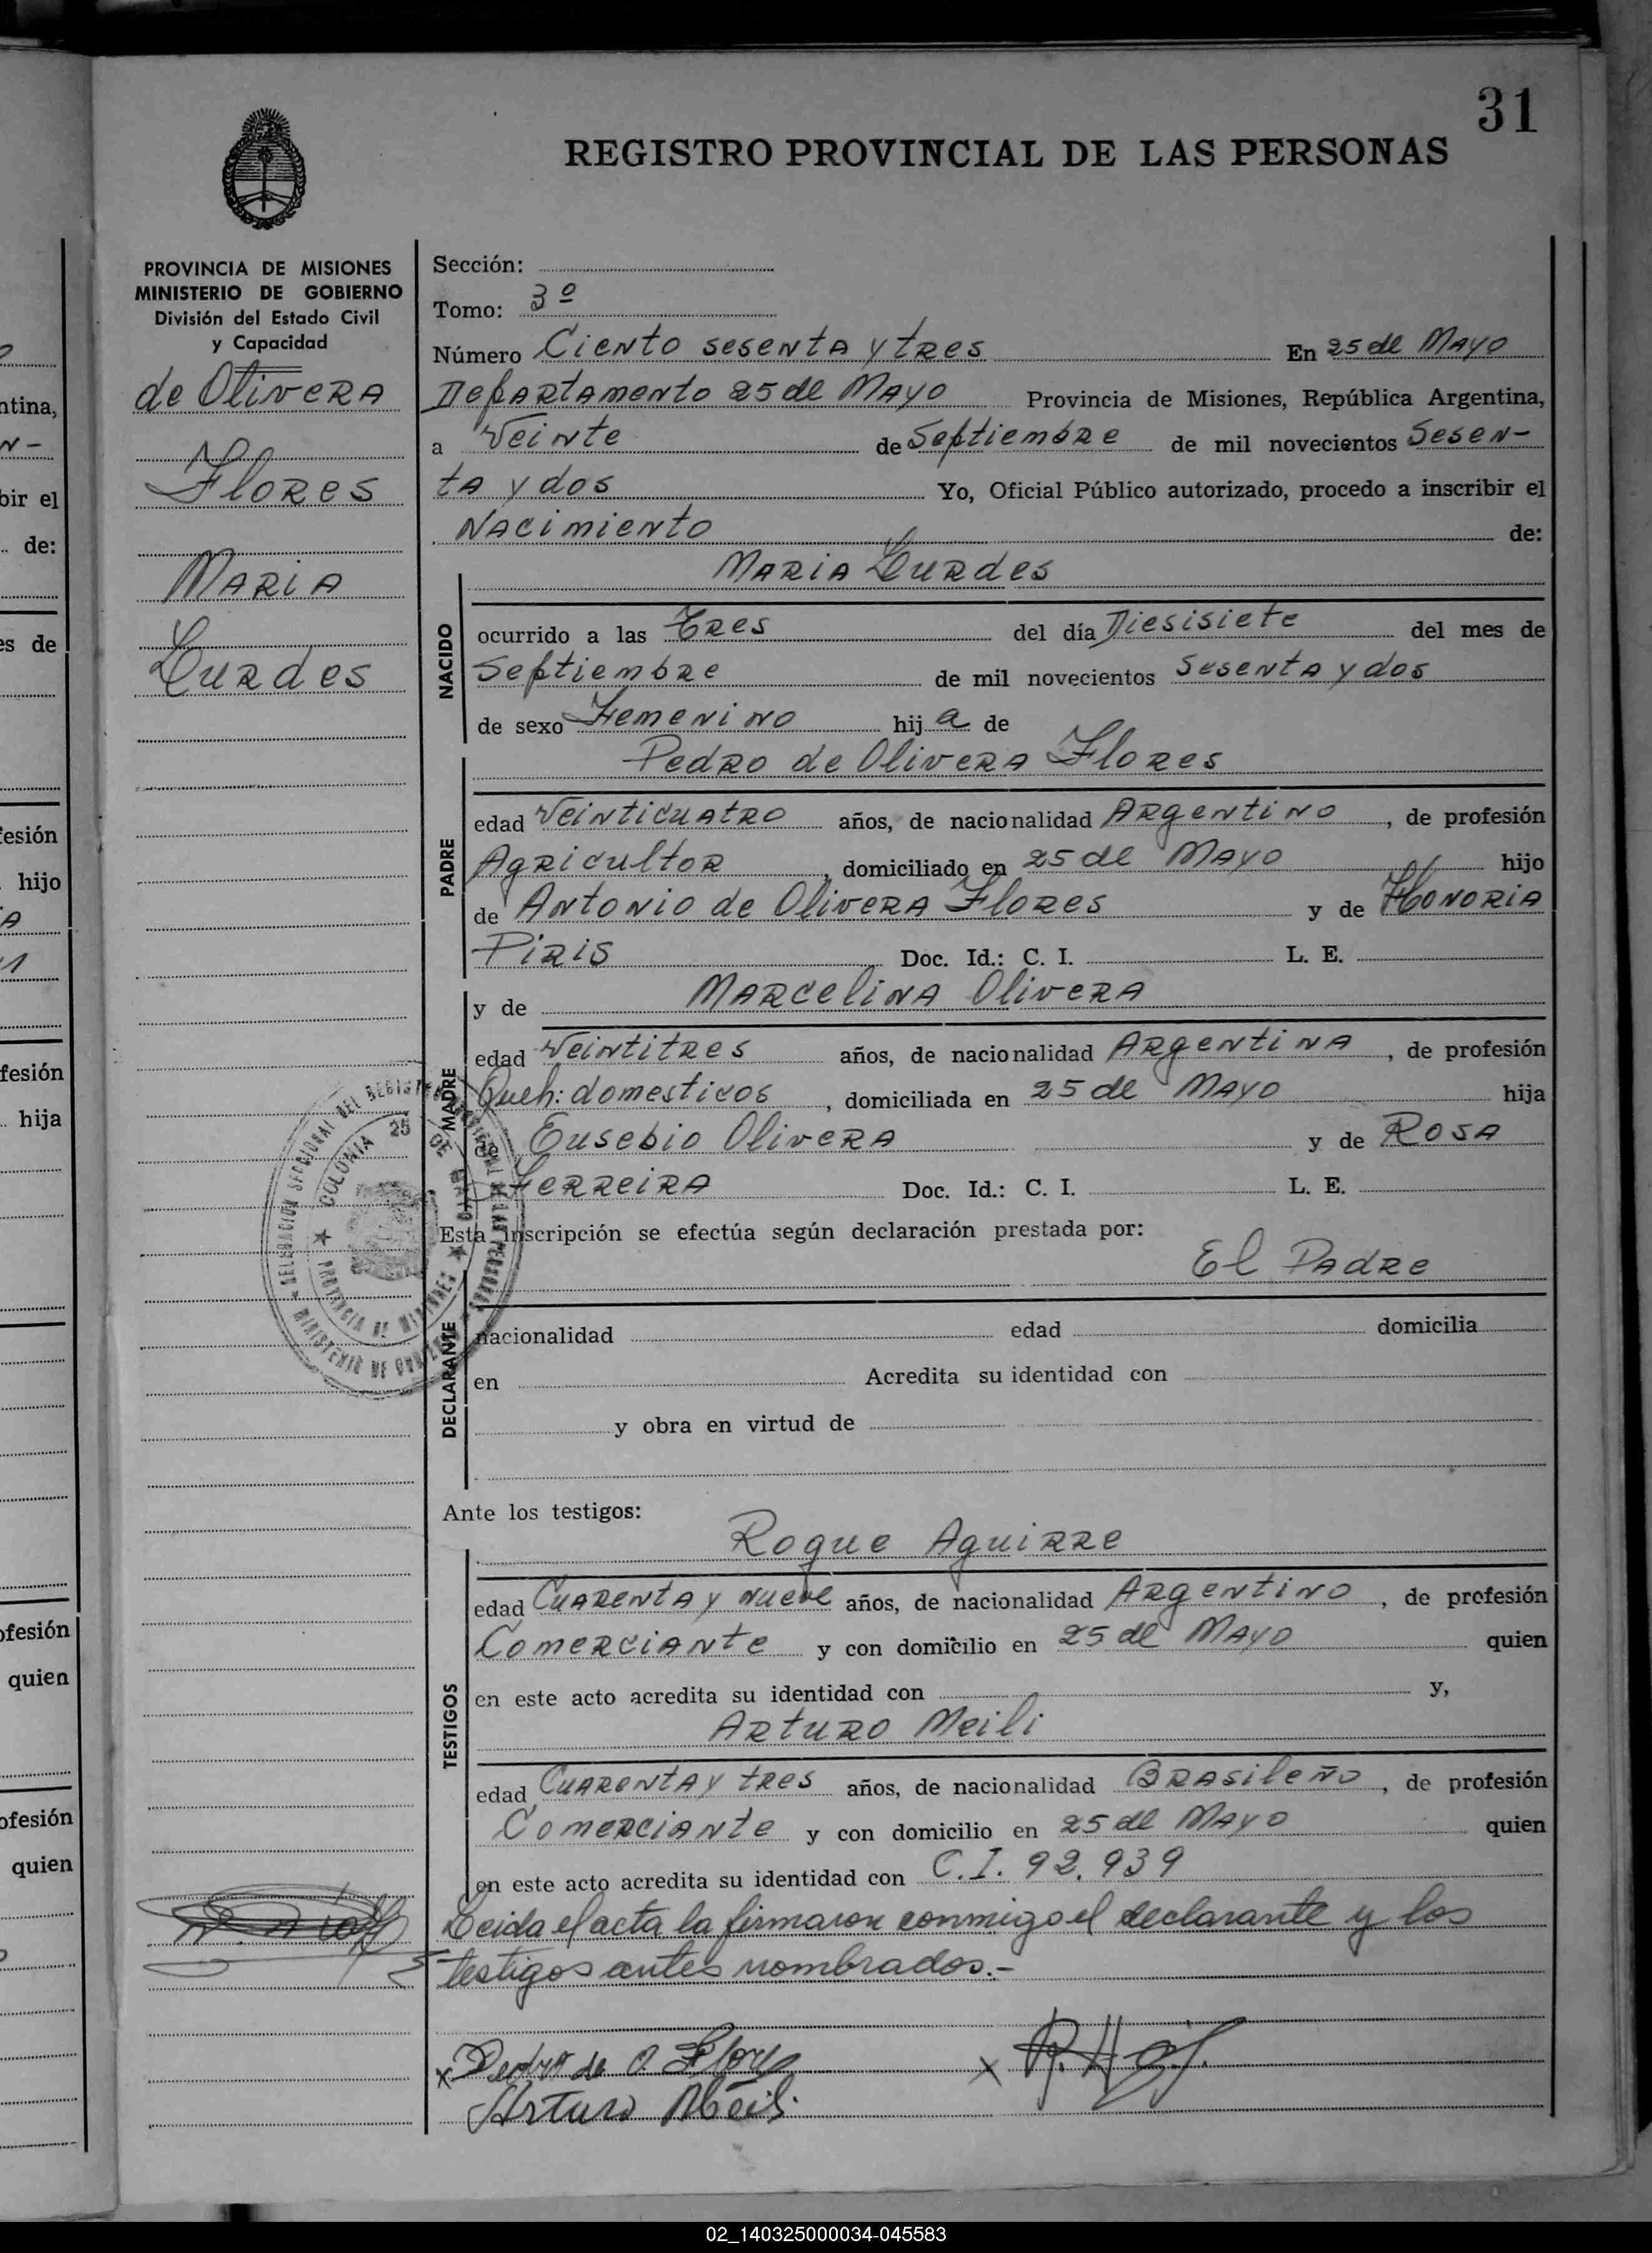 31
REGISTRO PROVINCIAL DE LAS PERSONAS
PROVINCIA DE MISIONES
MINISTERIO DE GOBIERNO
División del Estado Civil
y Capacidad
de Olivera
Flores
Maria
Lurdes
Sección:
Tomo: 3º
Número Ciento sesenta y tres En 25 de Mayo
Departamento 25 de Mayo Provincia de Misiones, República Argentina,
a Veinte de Septiembre de mil novecientos Sesen-
ta y dos Yo, Oficial Público autorizado, procedo a inscribir el
Nacimiento de:
Maria Lurdes
NACIDO
ocurrido a las Tres del día Diesisiete del mes de
Septiembre de mil novecientos Sesenta y dos
de sexo Femenino hij a de
Pedro de Olivera Flores
PADRE
edad Veinticuatro años, de nacionalidad Argentino, de profesión
Agricultor, domiciliado en 25 de Mayo hijo
de Antonio de Olivera Flores y de Honoria
Piris Doc. Id.: C. I. L. E.
y de Marcelina Olivera
MADRE
edad Veintitres años, de nacionalidad Argentina, de profesión
Queh: domesticos, domiciliada en 25 de Mayo hija
de Eusebio Olivera y de Rosa
Ferreira Doc. Id.: C. I. L. E.
Esta inscripción se efectúa según declaración prestada por:
El Padre
DECLARANTE
nacionalidad edad domicilia
en Acredita su identidad con
y obra en virtud de
Ante los testigos:
Roque Aguirre
TESTIGOS
edad Cuarenta y nueve años, de nacionalidad Argentino, de profesión
Comerciante y con domicilio en 25 de Mayo quien
en este acto acredita su identidad con y,
Arturo Meili
edad Cuarenta y tres años, de nacionalidad Brasileño, de profesión
Comerciante y con domicilio en 25 de Mayo quien
en este acto acredita su identidad con C.I. 92.939
Leida el acta la firmaron conmigo el declarante y los
testigos antes nombrados.-
x Pedro de O. Flores x
Arturo Meili
DELEGACIÓN SECCIONAL DEL REGISTRO PROVINCIAL DE LAS PERSONAS
MINISTERIO DE GOBIERNO
COLONIA 25 DE MAYO
PROVINCIA DE MISIONES
ntina,
N-
bir el
de:
es de
fesión
hijo
A
fesión
hija
ofesión
quien
ofesión
quien
02_140325000034-045583